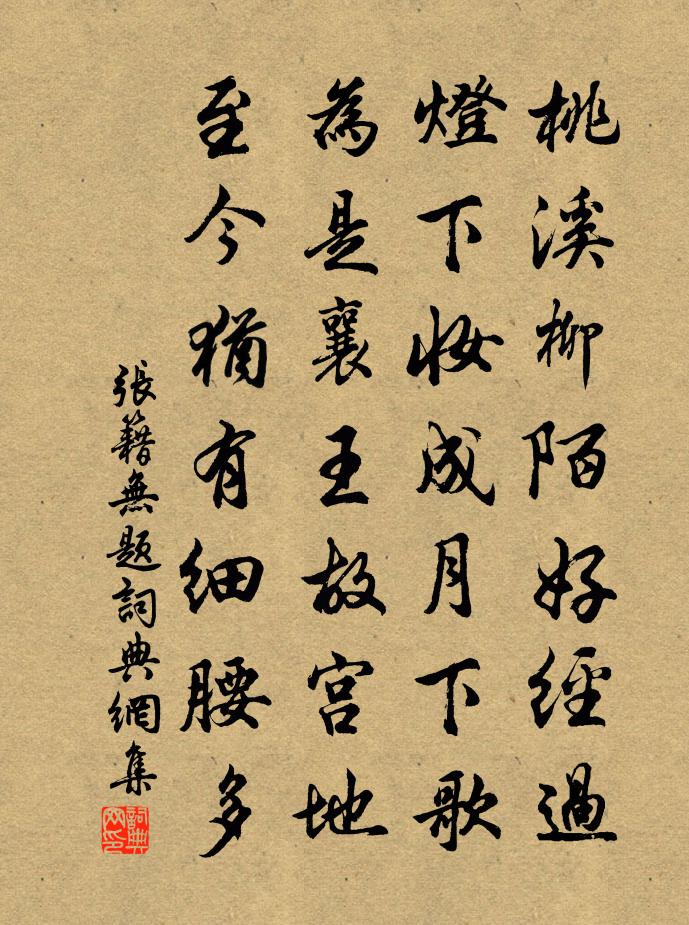 桃溪柳陌好經過
燈下妝成月下歌
為是襄王故宮地
至今猶有細腰多
張籍無題詞典網集
詞典网印